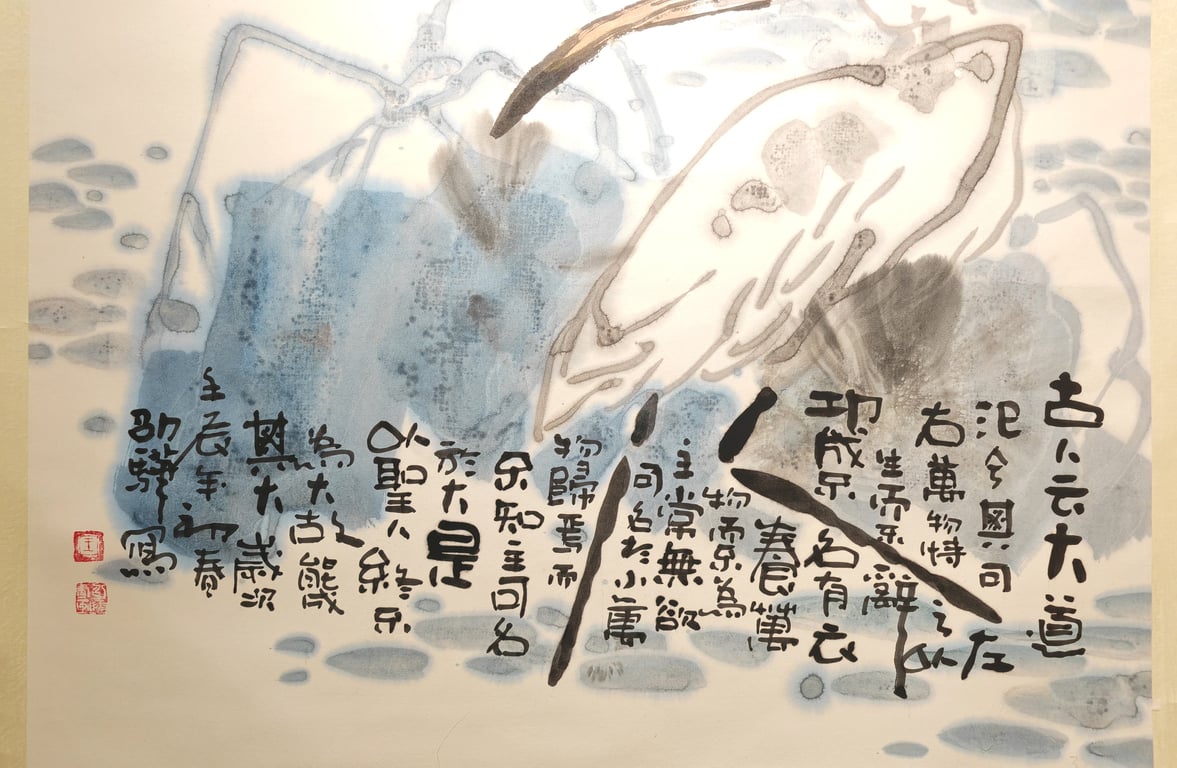 古人云大道
氾兮其可左
右萬物恃之以
生而不辭
功成不名有衣
養萬
物而不為
主常無欲
可名於小萬
物歸焉而
不知主可名
於大是
以聖人終不
為大故能成
其大歲次
壬辰年初春
邵寫